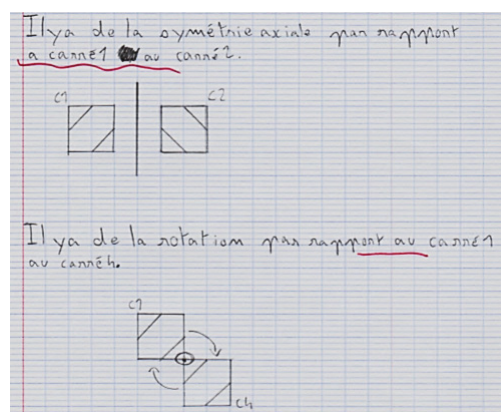 Il ya de la symétrie axiale par rapport
a carré1 au carré2.
C1
C2
Il ya de la rotation par rapport au carré1
au carré4.
C1
C4